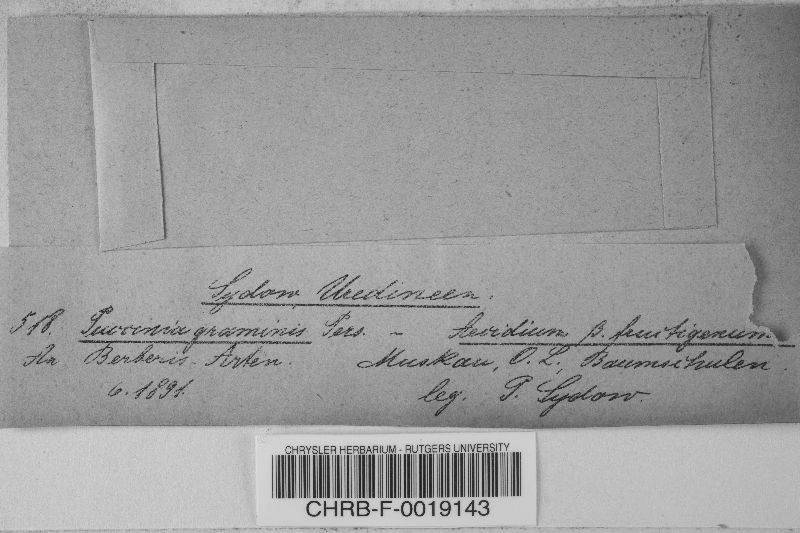 Sydow, Uredineen.
518. Puccinia graminis Pers. – Aecidium β. fructigenum.
An Berberis-Arten. Muskau, O. L., Baumschulen.
6. 1891. leg. P. Sydow.
CHRYSLER HERBARIUM - RUTGERS UNIVERSITY
CHRB-F-0019143